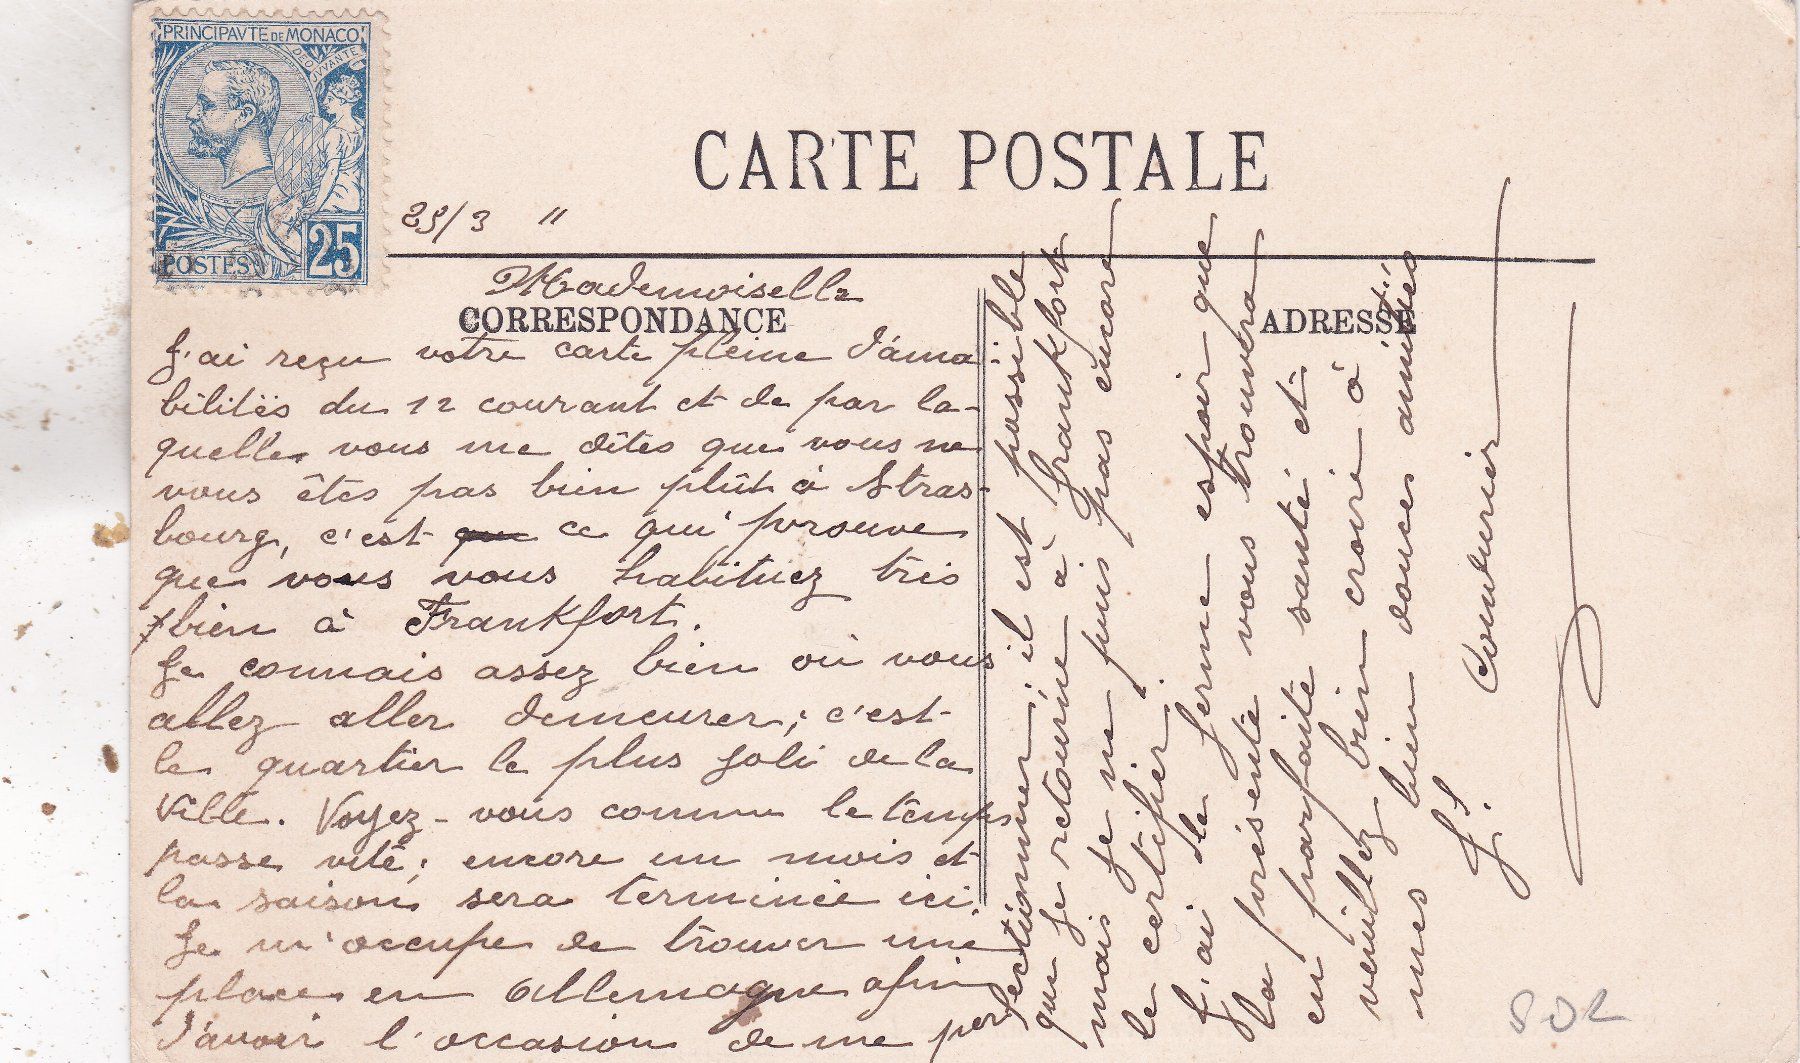 PRINCIPAVTE DE MONACO
DEO JUVANTE
25
POSTES
CARTE POSTALE
25/3 "
CORRESPONDANCE
ADRESSE
Mademoiselle
J'ai reçu votre carte pleine d'ama-
bilités du 12 courant et de par la-
quelle vous me dîtes que vous ne
vous êtes pas bien plût à Stras-
bourg, c'est que ce qui prouve
que vous vous habituez très
bien à Frankfort.
Je connais assez bien où vous
allez aller demeurer; c'est
le quartier le plus joli de la
ville. Voyez-vous comme le temps
passe vite; encore un mois et
la saison sera terminée ici.
Je m'occupe de trouver une
place en Allemagne afin
d'avoir l'occasion de me per
fectionner; il est possible
que je retourne à Frankfort
mais je ne puis pas encore
le certifier.
J'ai le ferme espoir que
la présente vous trouvera
en parfaite santé et
veuillez bien croire à
mes bien douces amitiés
J. Couturier
SDR